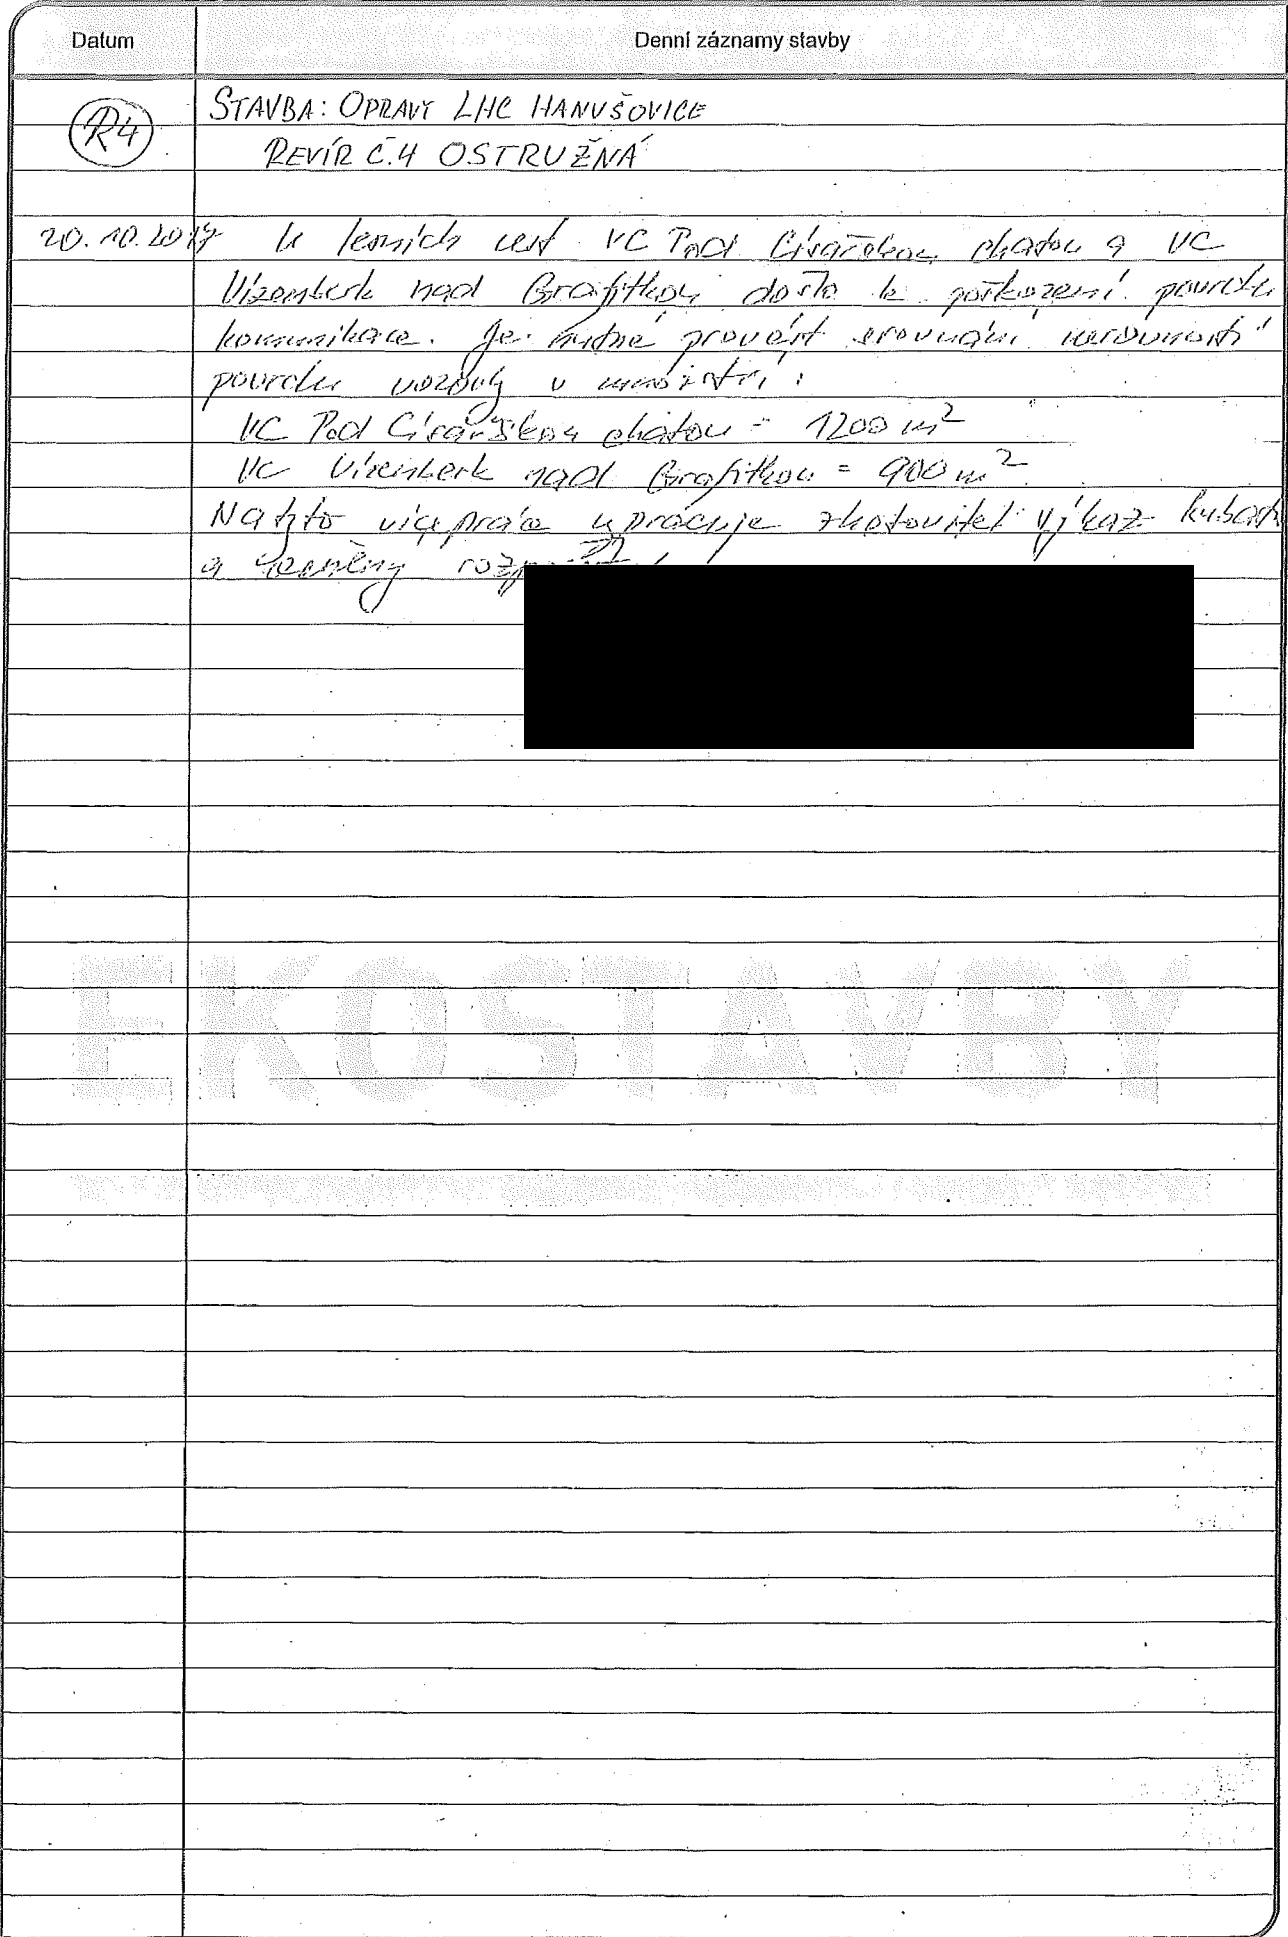 Datum Denní záznamy stavby
R4 STAVBA: OPRAVY LHC HANUŠOVICE
REVÍR Č.4 OSTRUŽNÁ
20.10.2017 U lesních cest VC Pod Císařskou chatou a VC
Vízemberk nad Grafitkou došlo k poškození povrchu
komunikace. Je nutné provést srovnání nerovností
povrchu vozovky v množství:
VC Pod Císařskou chatou = 1200 m²
VC Vízemberk nad Grafitkou = 900 m²
Na tyto vícepráce vypracuje zhotovitel výkaz kubatur
a
EKOSTAVBY